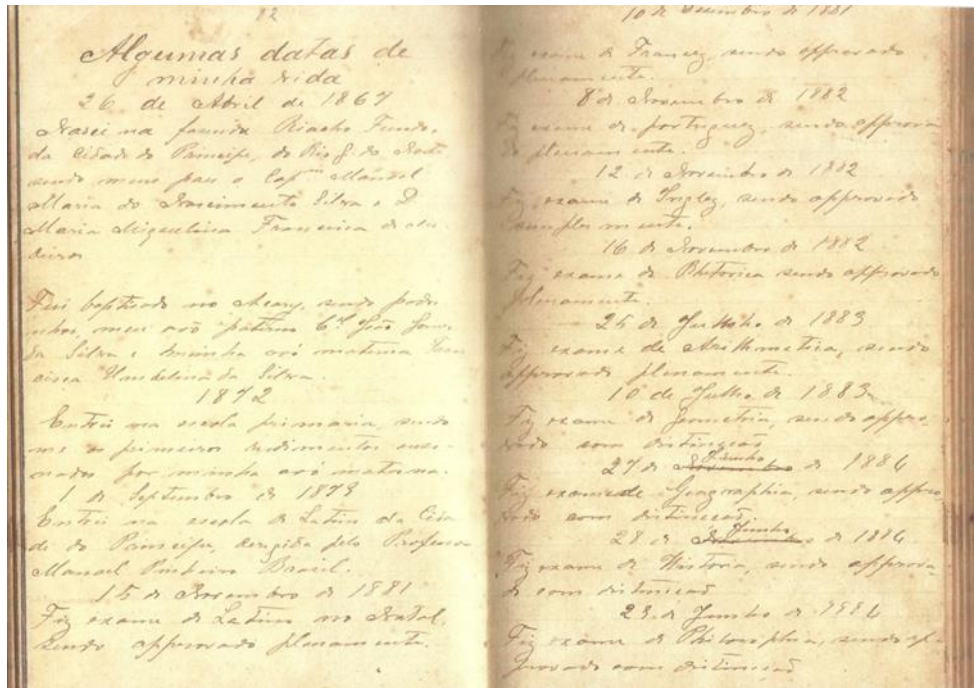 82
Algumas datas de
minha vida
26 de Abril de 1867
Nasci na fazenda Riacho Fundo,
da Cidade do Principe, do Rio G. do Norte
sendo meus paes o Capᵐ Manoel
Maria do Nascimento Silva e D
Maria Miguelina Francisca de Me
deiros
Fui baptisado no Acary, sendo padri
nhos, meu avô paterno Cᵉˡ João
da Silva e minha avó materna Fran
cisca Umbelina da Silva.
1872
Entrei na escola primaria, sendo
me os primeiros rudimentos ensi-
nados por minha avó materna.
1 de Septembro de 1879
Entrei na escola de Latim da Cida
de do Principe, dirigida pelo Professor
Manoel Pinheiro Brasil.
15 de Novembro de 1881
Fiz exame de Latim no Natal,
sendo approvado plenamente.
10 de Dezembro de 1881
Fiz exame de Francez, sendo approvado
plenamente.
8 de Novembro de 1882
Fiz exame de portuguez, sendo approva
do plenamente.
12 de Novembro de 1882
Fiz exame de Inglez, sendo approvado
simplesmente.
16 de Novembro de 1882
Fiz exame de Rhetorica sendo approvado
plenamente.
25 de Julho de 1883
Fiz exame de Arithmetica, sendo
approvado plenamente.
10 de Julho de 1883
Fiz exame de Geometria, sendo appro-
vado com distincção
27 de Novembro Junho de 1884
Fiz exame de Geographia, sendo appro
vado com distincção
28 de Novembro Junho de 1884
Fiz exame de Historia, sendo approva-
do com distincção
23 de Junho de 1884
Fiz exame de Philosophia, sendo ap
provado com distincção